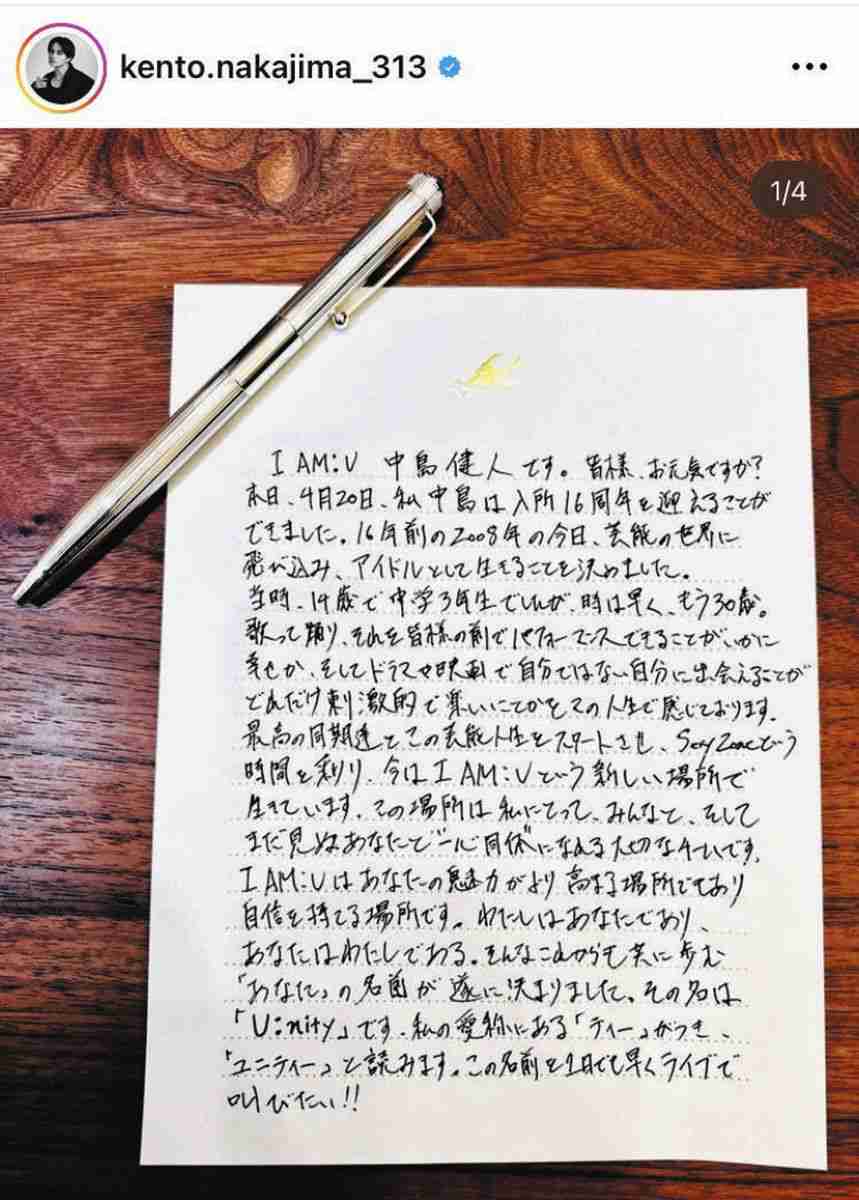 kento.nakajima_313
1/4
I AM:U 中島健人です。皆様、お元気ですか?
本日、4月20日、私中島は入所16周年を迎えることが
できました。16年前の2008年の今日、芸能の世界に
飛び込み、アイドルとして生きることを決めました。
当時、14歳で中学3年生でしたが、時は早く、もう30歳。
歌って踊り、それを皆様の前でパフォーマンスできることがいかに
幸せか、そしてドラマや映画で自分ではない自分に出会えることが
どれだけ刺激的で楽しいことかをこの人生で感じております。
最高の同期達とこの芸能人生をスタートさせ、Sexy Zoneという
時間を彩り、今はI AM:Uという新しい場所で
生きています。この場所は私にとって、みんなと、そして
まだ見ぬあなたと"一心同体"になれる大切なチームです。
I AM:Uはあなたの魅力がより高まる場所でもあり
自信を持てる場所です。わたしはあなたであり、
あなたはわたしである。そんなこれからも共に歩む
「あなた」の名前が遂に決まりました。その名は
「U:nity」です。私の愛称にある「ティー」がつき、
「ユニティー」と読みます。この名前を1日でも早くライブで
叫びたい!!